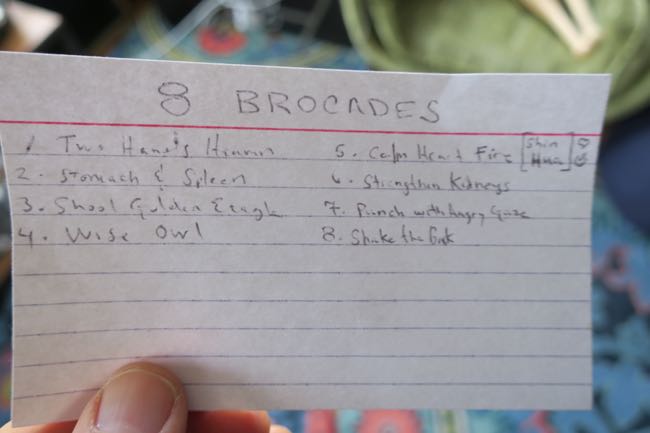 8 BROCADES
1 Two Hands Heaven
2. Stomach & Spleen
3. Shoot Golden Eeagle
4. Wise Owl
5. Calm Heart Fire [Shin Hua]
6. Strengthen Kidneys
7. Punch with Angry Gaze
8. Shake the